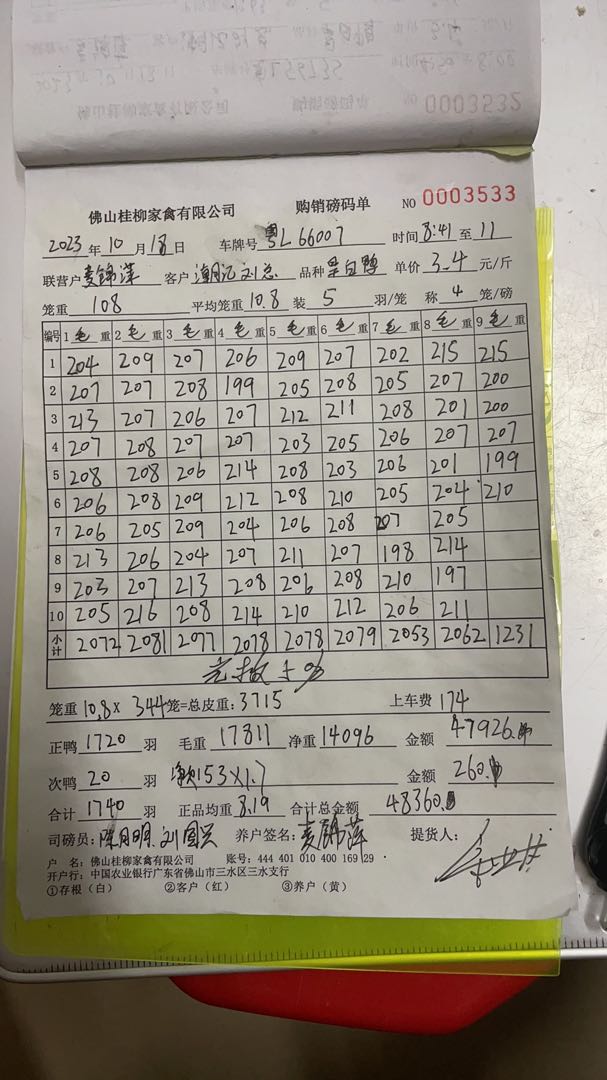 0003532
佛山桂柳家禽有限公司 购销磅码单 NO 0003533
2023年10月18日 车牌号 粤L66007 时间 8:41 至 11
联营户 麦锦萍 客户 刘总 品种 白鸭 单价 3.4 元/斤
笼重 108 平均笼重 10.8 装 5 羽/笼 称 4 笼/磅
编号 1 毛 重 2 毛 重 3 毛 重 4 毛 重 5 毛 重 6 毛 重 7 毛 重 8 毛 重 9 毛 重
1 204 209 207 206 209 207 202 215 215
2 207 207 208 199 205 208 205 207 200
3 213 207 206 207 212 211 208 201 200
4 207 208 207 207 203 205 206 207 207
5 208 208 206 214 208 203 206 201 199
6 206 208 209 212 208 210 205 204 210
7 206 205 209 204 206 208 207 205
8 213 206 204 207 211 207 198 214
9 203 207 213 208 206 208 210 197
10 205 216 208 214 210 212 206 211
小计 2072 2081 2077 2078 2078 2079 2053 2062 1231
笼重 10.8 × 344 笼=总皮重: 3715 上车费 174
正鸭 1720 羽 毛重 17811 净重 14096 金额 47926.
次鸭 20 羽 153×1.7 金额 260.
合计 1740 羽 正品均重 8.19 合计总金额 48360.
司磅员: 陈月明 刘国兴 养户签名: 麦锦萍 提货人:
户 名: 佛山桂柳家禽有限公司 账号: 444 401 010 400 169 29
开户行: 中国农业银行广东省佛山市三水区三水支行
①存根(白) ②客户(红) ③养户(黄)